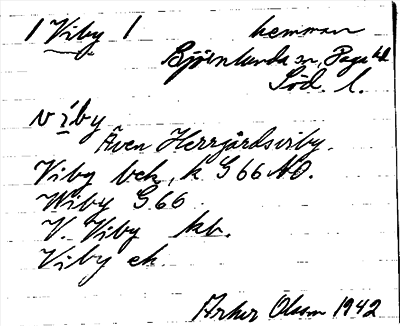 1 Viby 1 hemman
Björnlunda sn, Daga hd
Söd. l.
víby
Även Herrgårdsviby.
Viby bek, k G 66 NO.
Wiby G 66
V. Viby kb.
Viby ek.
Artur Olsson 1942